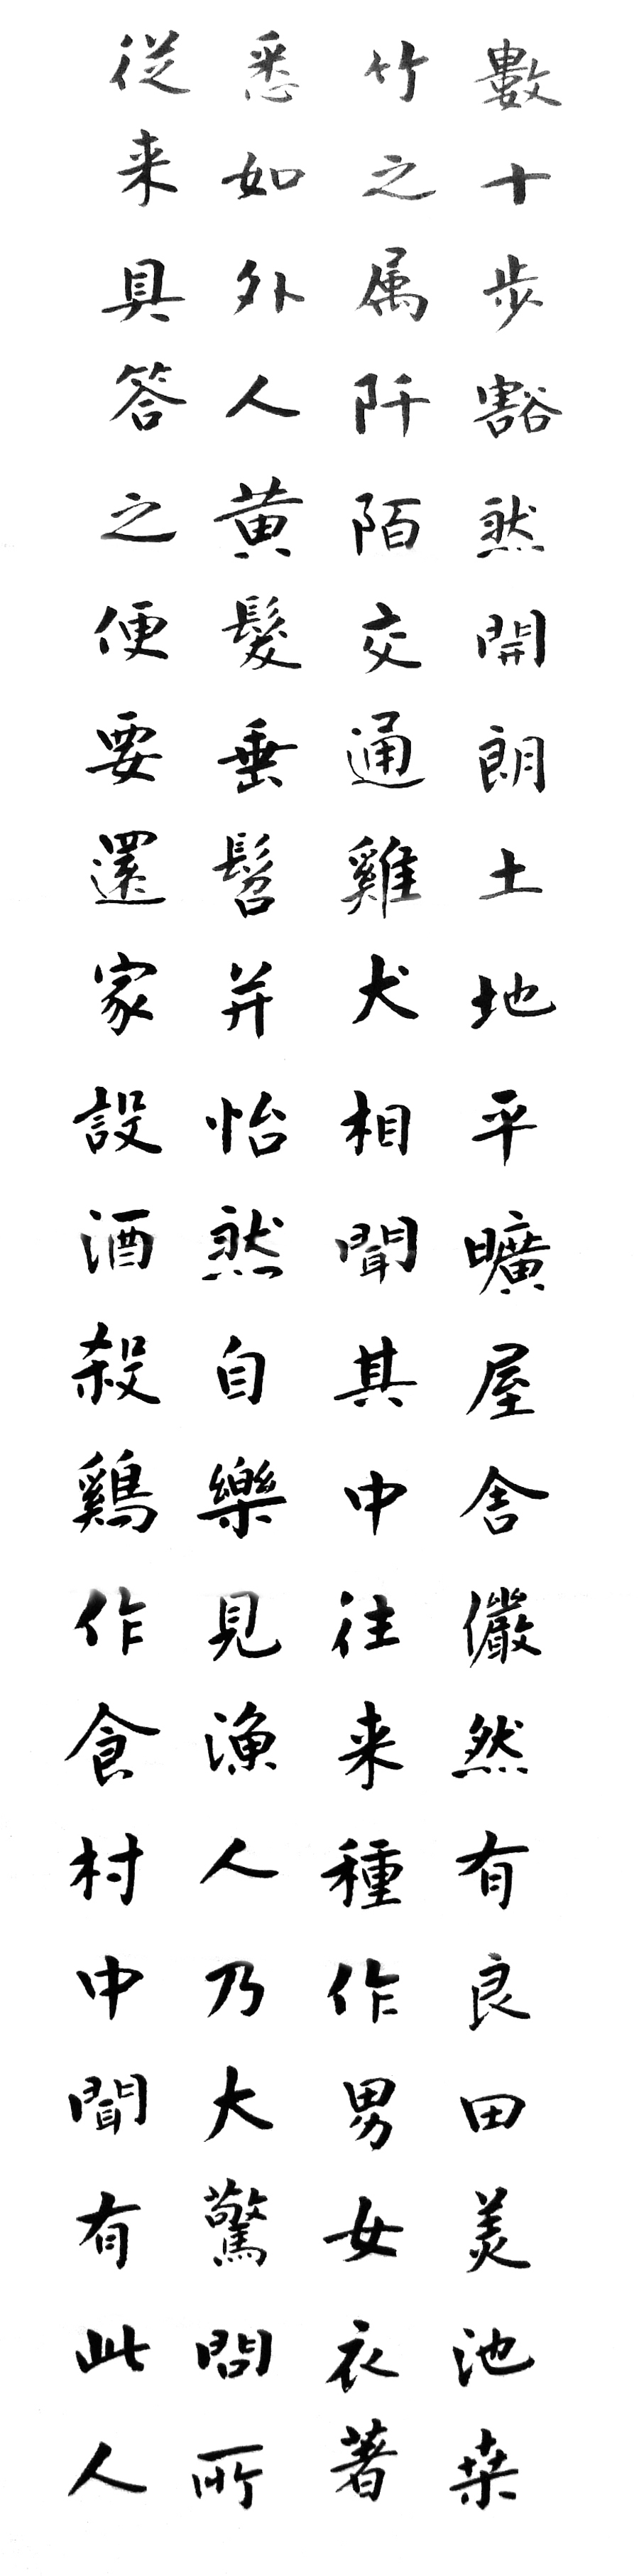 數十步豁然開朗土地平曠屋舍儼然有良田美池桒
竹之属阡陌交通雞犬相聞其中往来種作男女衣著
悉如外人黄髮垂髫并怡然自樂見漁人乃大驚問所
従来具答之便要還家設酒殺鷄作食村中聞有此人